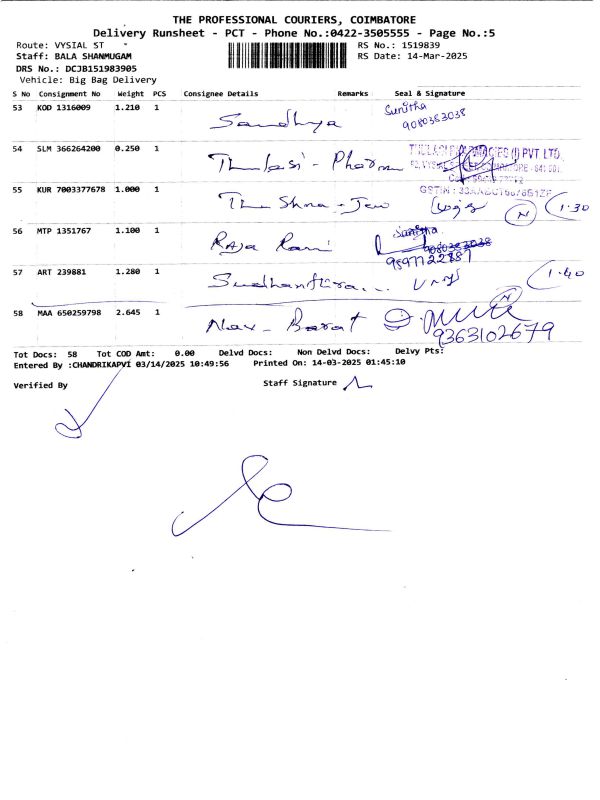 THE PROFESSIONAL COURIERS, COIMBATORE
Delivery Runsheet - PCT - Phone No.:0422-3505555 - Page No.:5
Route: VYSIAL ST
RS No.: 1519839
Staff: BALA SHANMUGAM
RS Date: 14-Mar-2025
DRS No.: DCJB151983905
Vehicle: Big Bag Delivery
S No Consignment No Weight PCS Consignee Details Remarks Seal & Signature
53 KOD 1316009 1.210 1 Sandhya Sunitha
9080383038
54 SLM 366264200 0.250 1 Thulasi - Pharm
PVT LTD.
55 KUR 7003377678 1.000 1 N 1.30
GSTIN :
56 MTP 1351767 1.100 1 Raja Rani
9080383038
57 ART 239881 1.280 1 1.40
58 MAA 650259798 2.645 1 Nav - Barat N
9363102679
Tot Docs: 58 Tot COD Amt: 0.00 Delvd Docs: Non Delvd Docs: Delvy Pts:
Entered By :CHANDRIKAPVI 03/14/2025 10:49:56 Printed On: 14-03-2025 01:45:10
Verified By Staff Signature